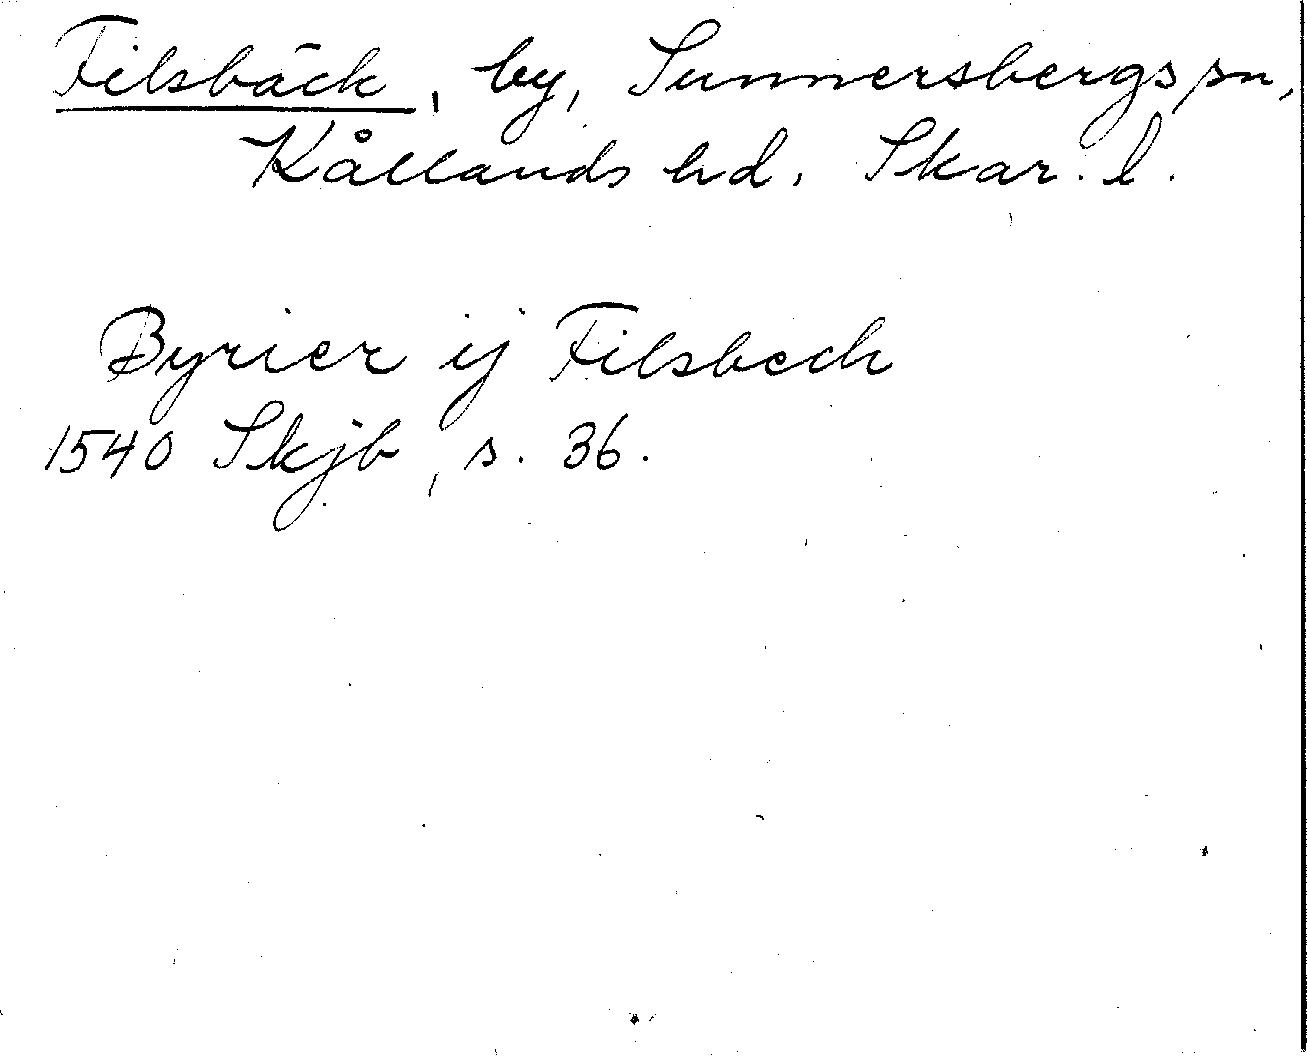 Filsbäck, by, Sunnersbergs sn,
Kållands hd. Skar. l.
Byrier ij Filsbech
1540 Skjb, s. 36.